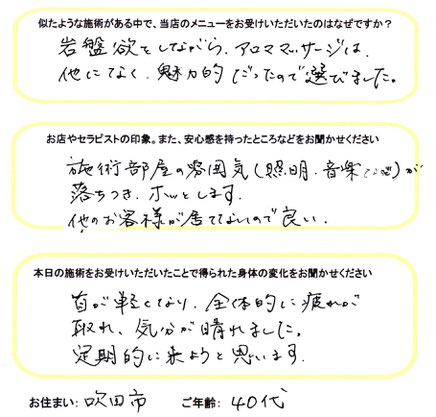 似たような施術がある中で、当店のメニューをお受けいただいたのはなぜですか？
岩盤欲をしながら、アロママッサージは、
他にてなく、魅力的だったので選びました。
お店やセラピストの印象。また、安心感を持ったところなどをお聞かせください
施術部屋の雰囲気(照明、音楽など)が
落ちつき、ホッとします。
他のお客様が居てないので良い。
本日の施術をお受けいただいたことで得られた身体の変化をお聞かせください
首が軽くなり、全体的に疲れが
取れ、気分が晴れました。
定期的に来ようと思います。
お住まい: 吹田市 ご年齢: 40代